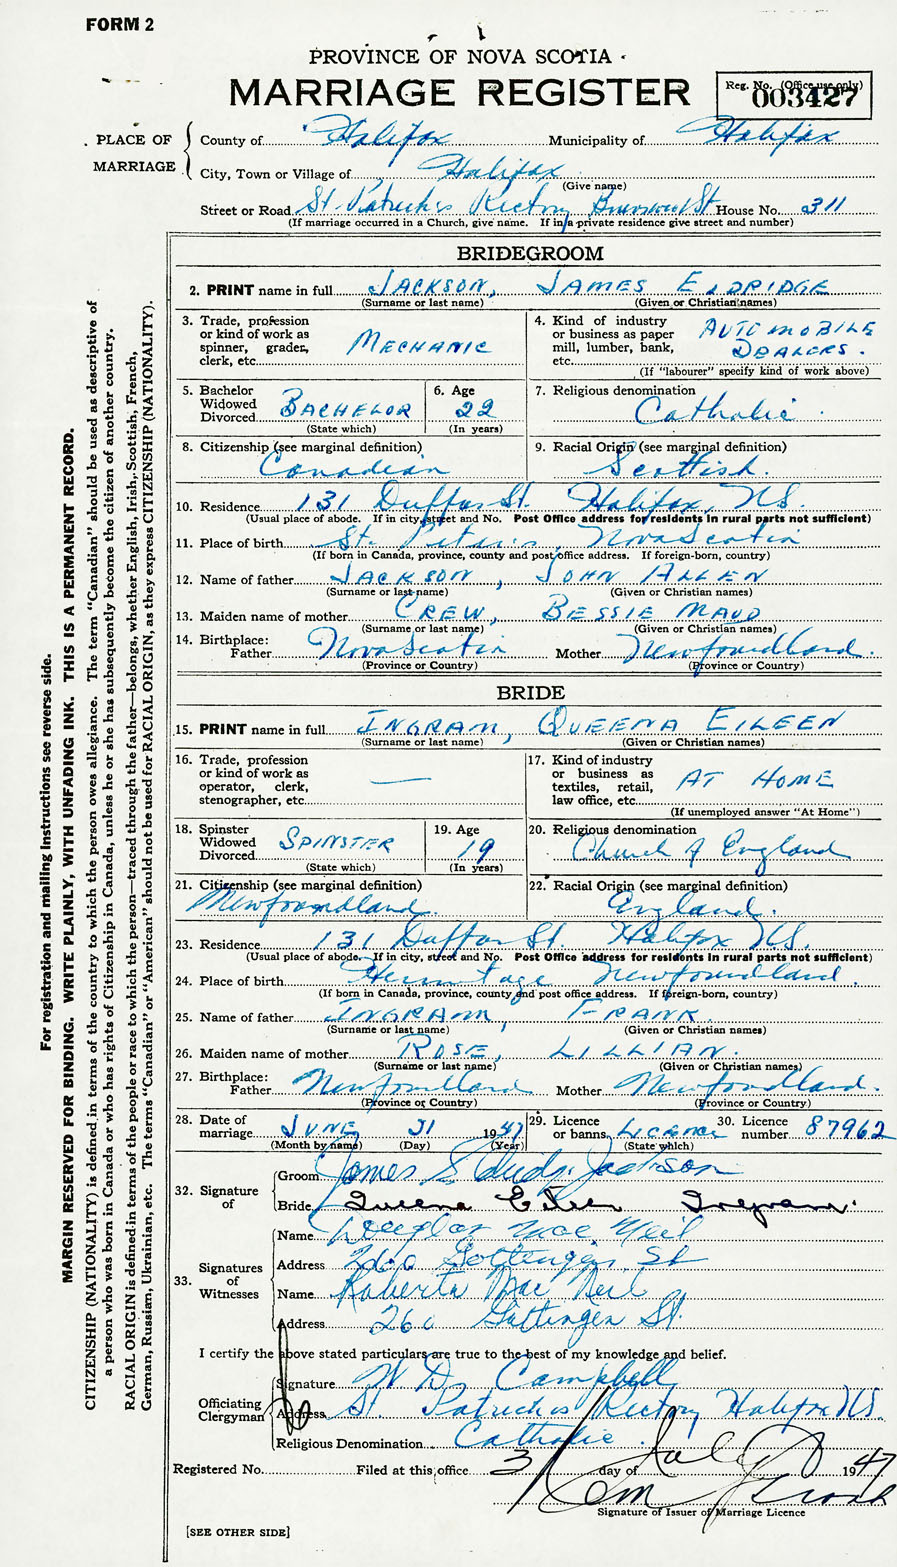 FORM 2
PROVINCE OF NOVA SCOTIA
MARRIAGE REGISTER
Reg. No. (Office use only)
003427
PLACE OF MARRIAGE
County of Halifax Municipality of Halifax
City, Town or Village of Halifax
(Give name)
Street or Road St. Patrick's Rectory Brunswick St House No. 311
(If marriage occurred in a Church, give name. If in a private residence give street and number)
BRIDEGROOM
2. PRINT name in full JACKSON, JAMES ELDRIDGE
(Surname or last name) (Given or Christian names)
3. Trade, profession or kind of work as spinner, grader, clerk, etc. MECHANIC
4. Kind of industry or business as paper mill, lumber, bank, etc. AUTOMOBILE DEALERS.
(If "labourer" specify kind of work above)
5. Bachelor Widowed Divorced BACHELOR
(State which)
6. Age 22
(In years)
7. Religious denomination Catholic
8. Citizenship (see marginal definition) Canadian
9. Racial Origin (see marginal definition) Scottish.
10. Residence 131 Duffus St. Halifax, NS.
(Usual place of abode. If in city, street and No. Post Office address for residents in rural parts not sufficient)
11. Place of birth St. Peters, Nova Scotia
(If born in Canada, province, county and post office address. If foreign-born, country)
12. Name of father JACKSON, JOHN ALLEN
(Surname or last name) (Given or Christian names)
13. Maiden name of mother CREW, BESSIE MAUD
(Surname or last name) (Given or Christian names)
14. Birthplace: Father Nova Scotia Mother Newfoundland.
(Province or Country) (Province or Country)
BRIDE
15. PRINT name in full INGRAM, QUEENA EILEEN
(Surname or last name) (Given or Christian names)
16. Trade, profession or kind of work as operator, clerk, stenographer, etc. —
17. Kind of industry or business as textiles, retail, law office, etc. AT HOME
(If unemployed answer "At Home")
18. Spinster Widowed Divorced SPINSTER
(State which)
19. Age 19
(In years)
20. Religious denomination Church of England
21. Citizenship (see marginal definition) Newfoundland.
22. Racial Origin (see marginal definition) England.
23. Residence 131 Duffus St. Halifax NS.
(Usual place of abode. If in city, street and No. Post Office address for residents in rural parts not sufficient)
24. Place of birth Hermitage Newfoundland.
(If born in Canada, province, county and post office address. If foreign-born, country)
25. Name of father INGRAM, FRANK.
(Surname or last name) (Given or Christian names)
26. Maiden name of mother ROSE, LILLIAN.
(Surname or last name) (Given or Christian names)
27. Birthplace: Father Newfoundland Mother Newfoundland.
(Province or Country) (Province or Country)
28. Date of marriage JUNE 21 1947
(Month by name) (Day) (Year)
29. Licence or banns LICENCE
(State which)
30. Licence number 87962
32. Signature of
Groom James Jackson
Bride Queena Eileen Ingram.
33. Signatures of Witnesses
Name Douglas MacNeil
Address 260 Gottingen St
Name Roberta MacNeil
Address 260 Gottingen St.
I certify the above stated particulars are true to the best of my knowledge and belief.
Officiating Clergyman
Signature W D. Campbell
Address St. Patrick's Rectory Halifax NS.
Religious Denomination Catholic
Registered No. Filed at this office 3 day of July 1947
Signature of Issuer of Marriage Licence
[SEE OTHER SIDE]
For registration and mailing instructions see reverse side.
MARGIN RESERVED FOR BINDING. WRITE PLAINLY, WITH UNFADING INK. THIS IS A PERMANENT RECORD.
CITIZENSHIP (NATIONALITY) is defined in terms of the country to which the person owes allegiance. The term "Canadian" should be used as descriptive of
a person who was born in Canada or who has rights of Citizenship in Canada, unless he or she has subsequently become the citizen of another country.
RACIAL ORIGIN is defined in terms of the people or race to which the person—traced through the father—belongs, whether English, Irish, Scottish, French,
German, Russian, Ukrainian, etc. The terms "Canadian" or "American" should not be used for RACIAL ORIGIN, as they express CITIZENSHIP (NATIONALITY).